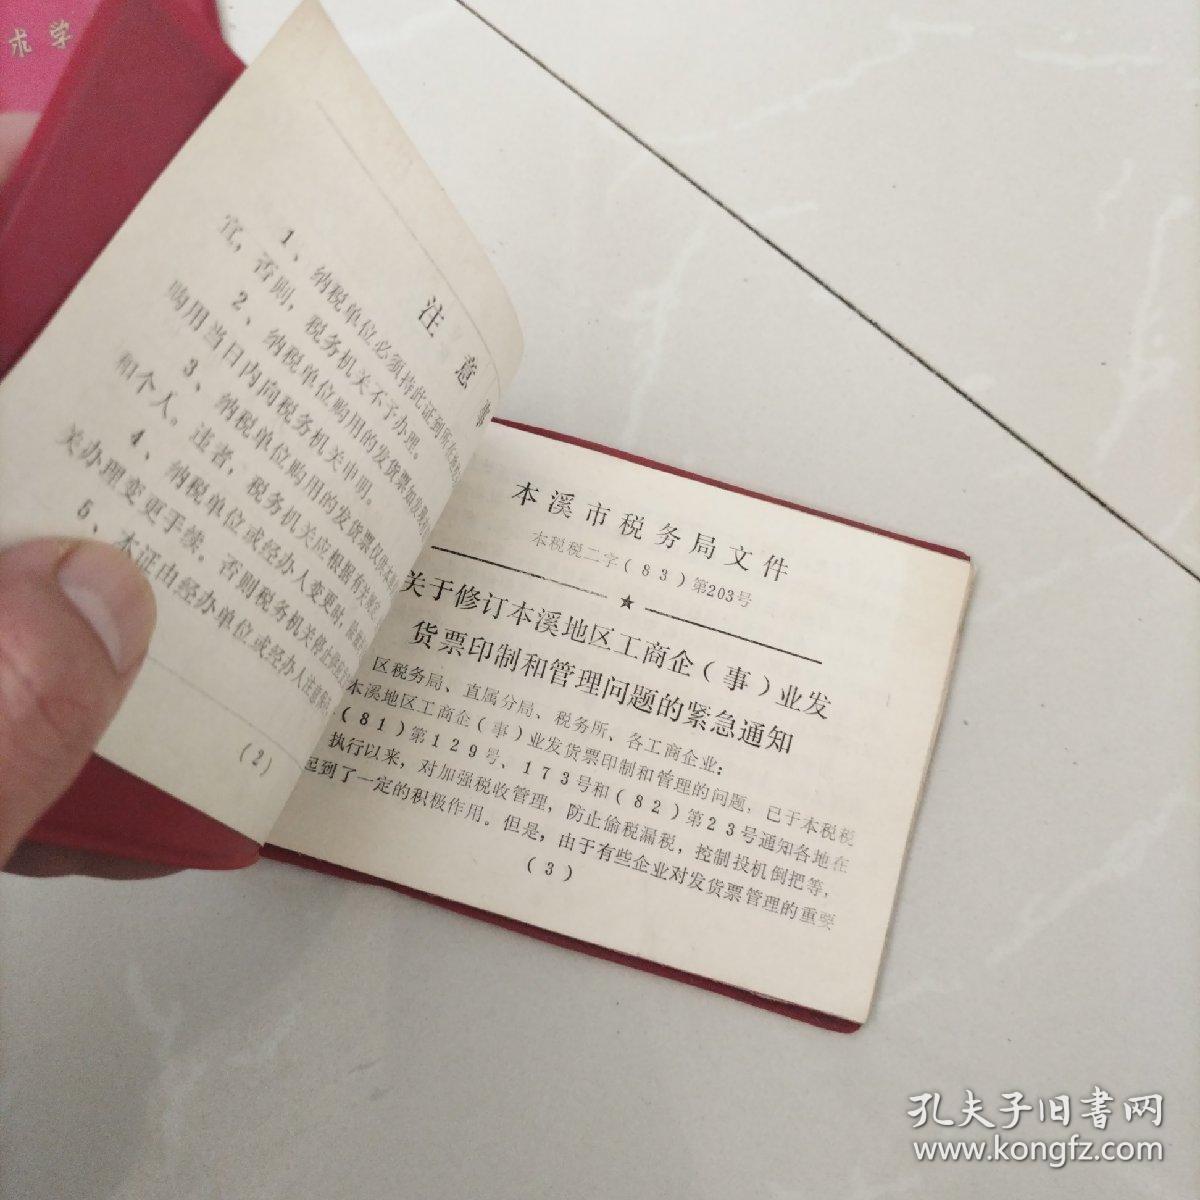 求学
注意事
1、纳税单位必须持此证到所在地
宜，否则，税务机关不予办理。
2、纳税单位购用的发货票如发现
购用当日内向税务机关申明。
3、纳税单位购用的发货票仅供本
和个人。违者，税务机关应根据有关规定
4、纳税单位或经办人变更时，
关办理变更手续。否则税务机关停止供应
5、本证由经办单位或经办人注意保
(2)
本溪市税务局文件
本税税二字(83)第203号
★
关于修订本溪地区工商企(事)业发
货票印制和管理问题的紧急通知
区税务局、直属分局、税务所、各工商企业：
本溪地区工商企(事)业发货票印制和管理的问题，已于本税税
(81)第129号、173号和(82)第23号通知各地在
执行以来，对加强税收管理，防止偷税漏税，控制投机倒把等，
起到了一定的积极作用。但是，由于有些企业对发货票管理的重要
(3)
孔夫子旧书网
www.kongfz.com